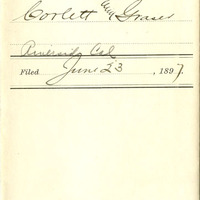 Corlett & Graser
Riverside Cal
Filed June 23, 1897.